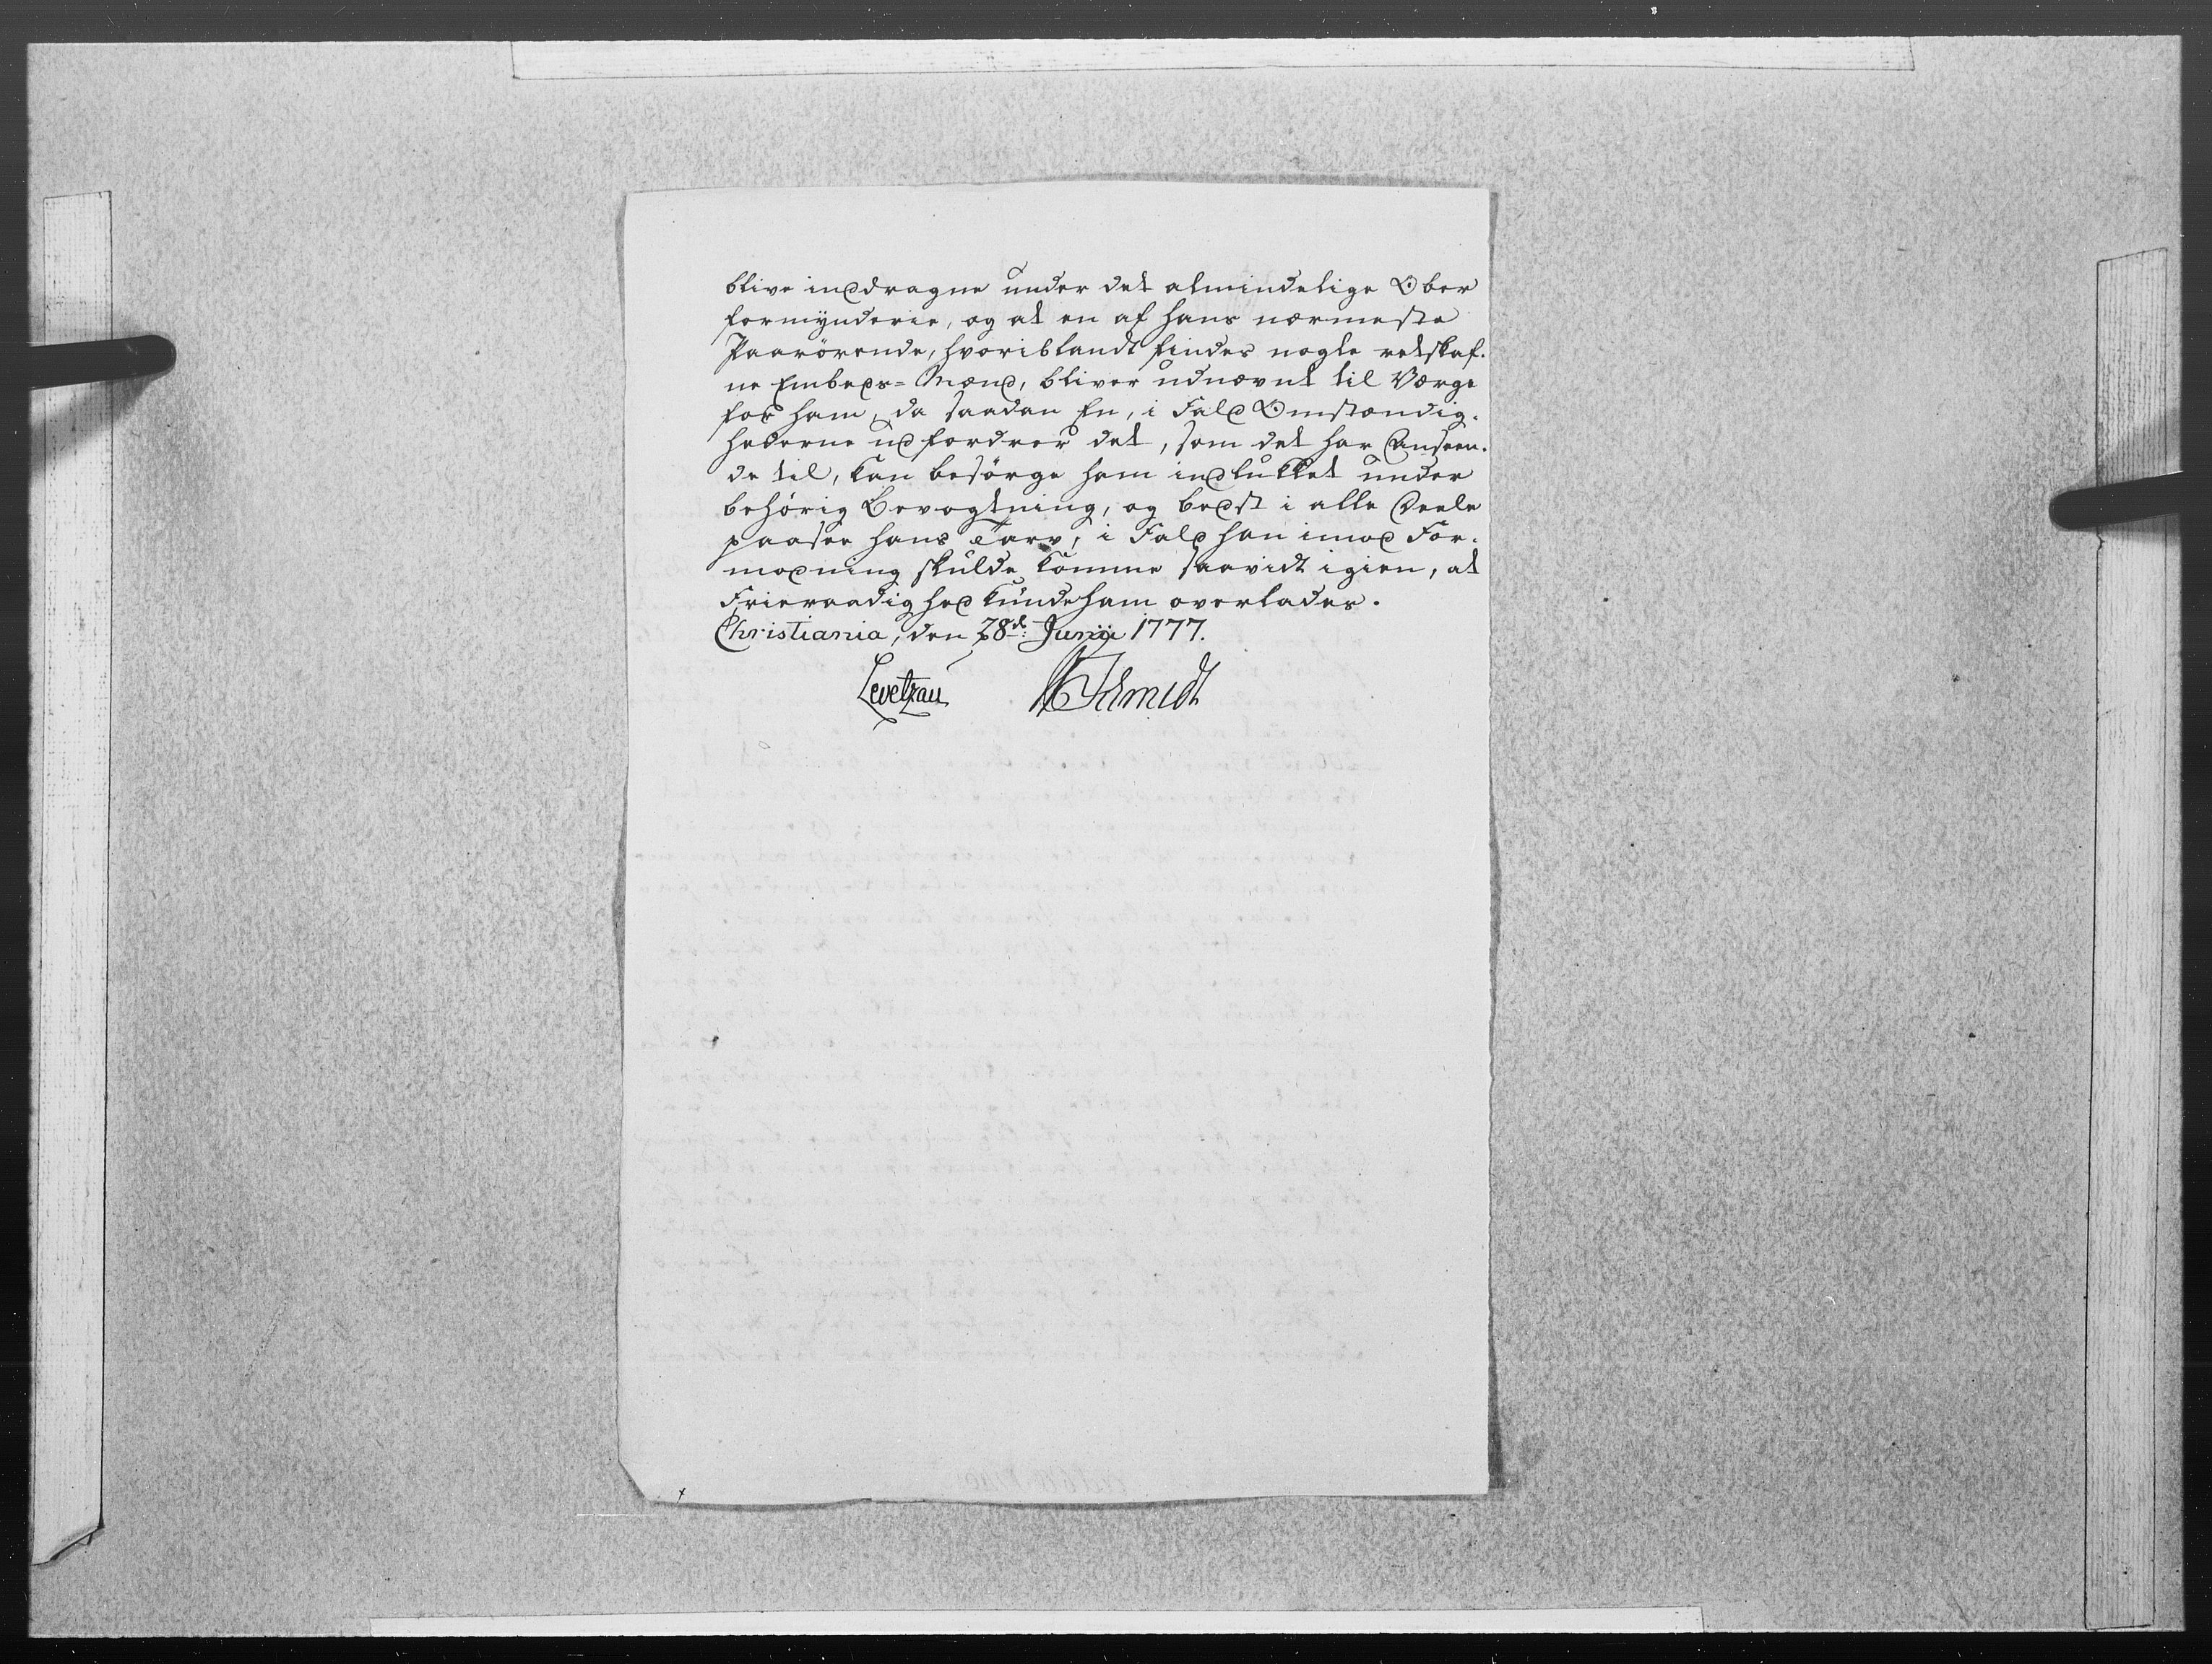 blive inddragne under det almindelige Ober
formynderie, og at en af hans nærmeste
Paarörende, hvoriblandt findes nogle retskaf-
ne Embeds=Mænd, bliver udnævnt til Værge
for ham, da saadan En, i Fald Omstændig-
hederne udfordrer det, som det har Anseen-
de til, kan besörge ham indlukket under
behörig Bevogtning, og bedst i alle Deele
paasee hans Tarv, i Fald han imod For-
modning skulde komme saavidt igien, at
Frieraadighed kunde ham overlades.
Christiania, den 28d: Junii 1777.
Levetzau Schmidt